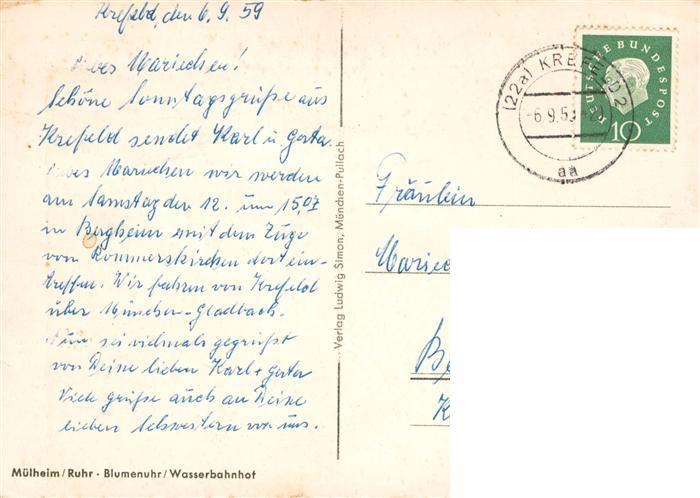 Krefeld, den 6.9.59
Liebes Mariechen!
Schöne Sonntagsgrüße aus
Krefeld sendet Karl u. Gerta.
Liebes Mariechen wir werden
am Samstag den 12. um 15,07
in Bergheim mit dem Zuge
von Rommerskirchen dort ein-
treffen. Wir fahren von Krefeld
über München-Gladbach.
Nun sei vielmals gegrüßt
von Deine lieben Karl + Gerta
Viele Grüße auch an Deine
lieben Schwestern von uns.
Mülheim/Ruhr · Blumenuhr/Wasserbahnhof
Verlag Ludwig Simon, München-Pullach
DEUTSCHE BUNDESPOST
10
(22a) KREFELD 2
-6.9.59
aa
Fräulein
Mariech
Be
K